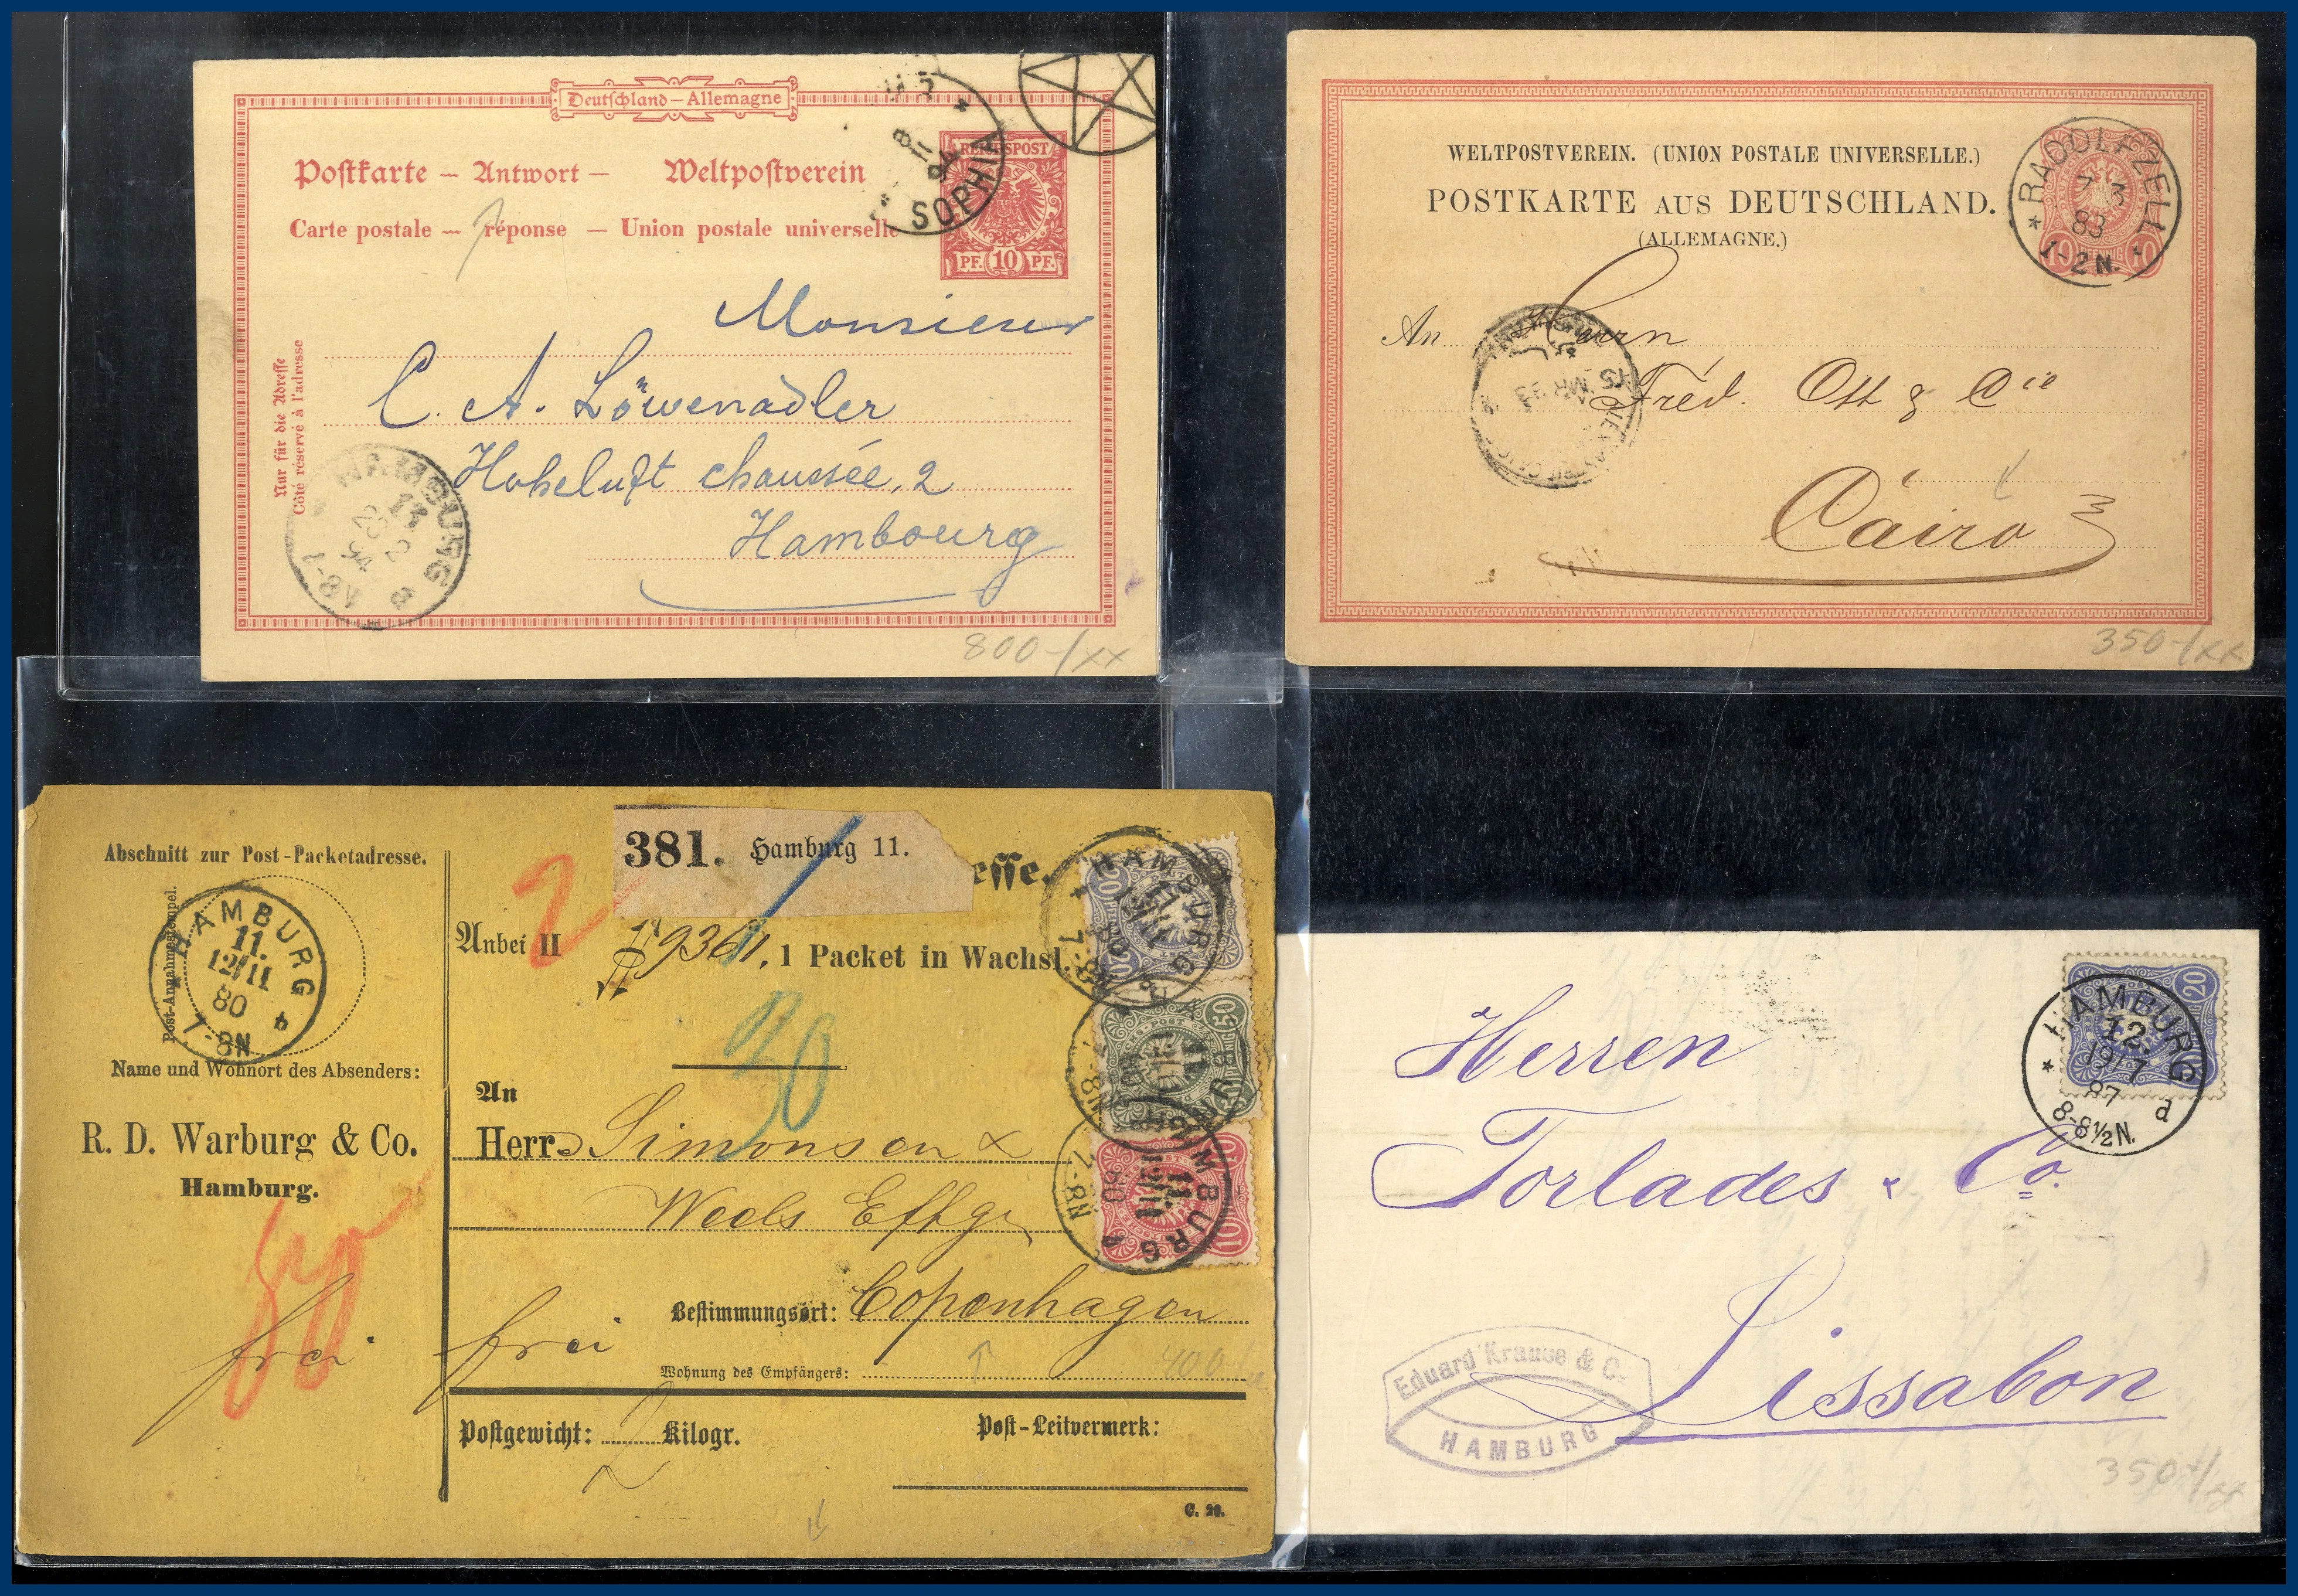 Deutschland – Allemagne
Postkarte – Antwort – Weltpostverein
Carte postale – réponse – Union postale universelle
REICHSPOST
PF. 10 PF.
SOPHIA
Nur für die Adresse
Côté réservé à l'adresse
Monsieur
C. A. Löwenadler
Hoheluft chaussée, 2
Hambourg
HAMBURG
13
2
94
7-8V
800-/xx
WELTPOSTVEREIN. (UNION POSTALE UNIVERSELLE.)
POSTKARTE AUS DEUTSCHLAND.
(ALLEMAGNE.)
RADOLFZELL
7 3
83
1-2N.
10 PFENNIG 10
An Herrn
Fréd. Ott & Cie
Cairo
15 MR 83
350-/xx
Abschnitt zur Post-Packetadresse.
Post-Annahmestempel.
HAMBURG
11.
12/11
80
7-8N
Name und Wohnort des Absenders:
R. D. Warburg & Co.
Hamburg.
50
frei
381. Hamburg 11.
esse.
2
Anbei II
9361. 1 Packet in Wachsl.
30
An
Herrn Simonsen &
Weels Eftfgr
Bestimmungsort: Copenhagen
frei
Wohnung des Empfängers:
400
Postgewicht: 2 Kilogr.
Post-Leitvermerk:
C. 20.
20
HAMBURG
11.
7-8N
50
10
HAMBURG
11.
12/11
80
7-8N
20
HAMBURG
12.
19/7
87
8-8½N. d
Herren
Torlades & Co.
Lissabon
Eduard Krause & Co.
HAMBURG
350-/xx